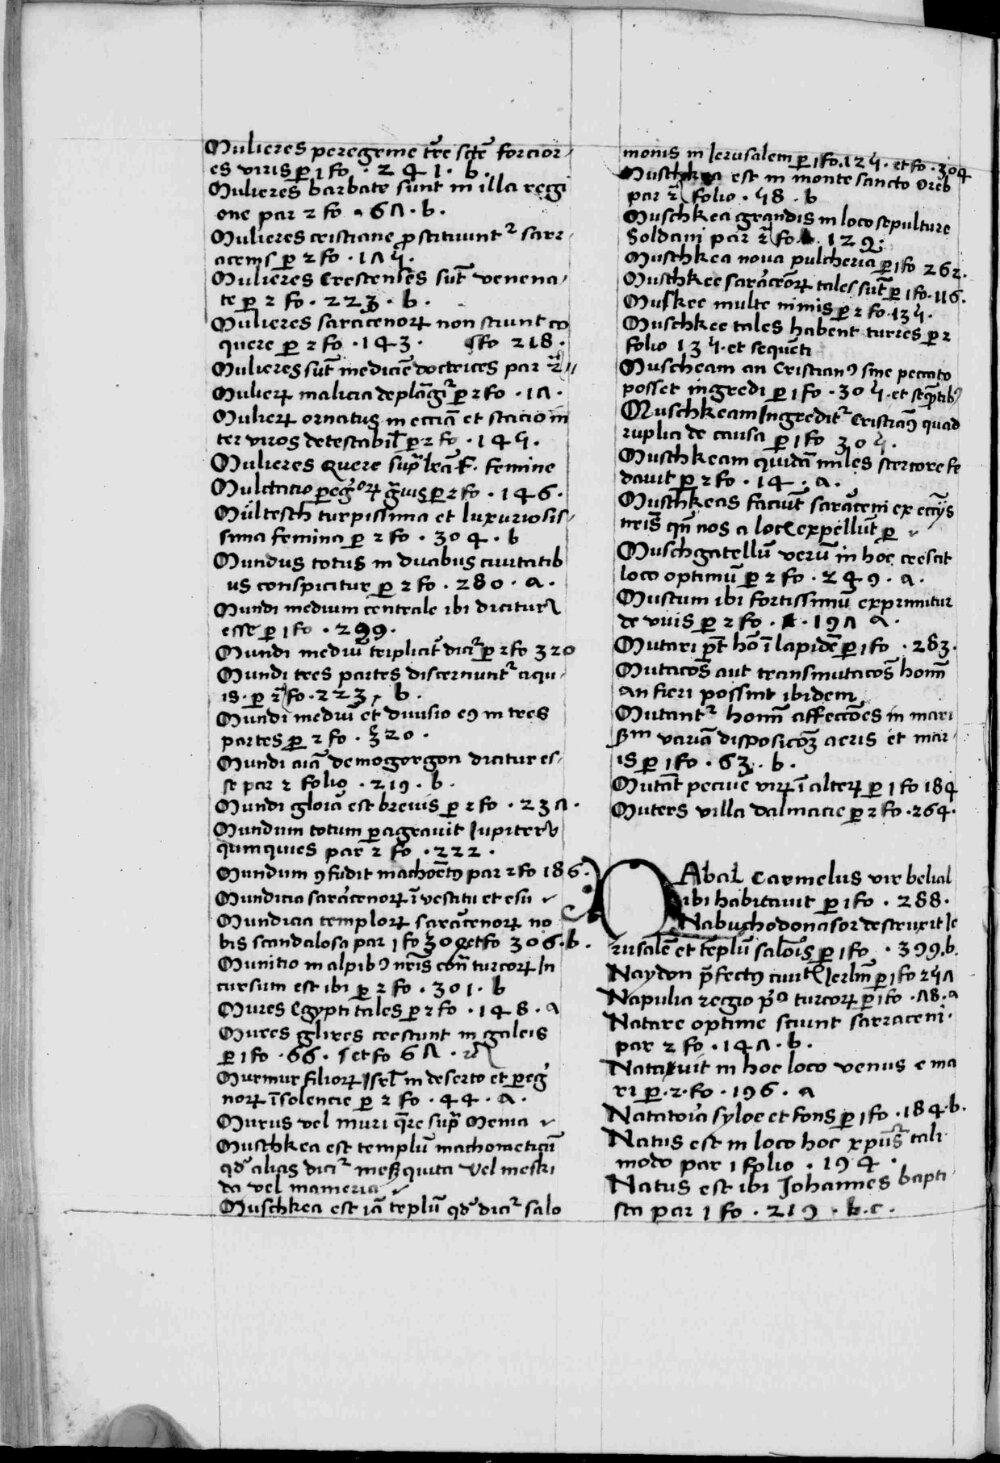 Mulieres peregrine t̄re sc̄te forcior
es viris ꝑ 1 fo · 241 · b ·
Mulieres barbate sunt in illa regi
one par 2 fo · 67 · b ·
Mulieres cristiane prostituunt᷑ sarr
acenis ꝑ 2 fo · 175 ·
Mulieres Crestenses sūt venena
te ꝑ 2 fo · 223 · b ·
Mulieres saracenoꝝ non sciunt co
quere ꝑ 2 fo · 143 · fo 218 ·
Mulieres sūt medicīe doctrices par 2
Mulierꝝ malicia deplāgit᷑ ꝑ 2 fo · 17 ·
Mulierꝝ ornatus in eccīa et stacio in
ter viros detestabil̄ ꝑ 2 fo · 145 ·
Mulieres Quere sup̄ l̄ra F. femine
ꝑ 2 fo · 146 ·
Mültesch turpissima et luxuriosis
sima femina ꝑ 2 fo · 304 · b
Mundus totus in duabus ciuitatib
us conspicitur ꝑ 2 fo · 280 · a ·
Mundi medium centrale ibi dicitur
esse ꝑ 1 fo · 299 ·
Mundi mediū triplicit᷑ dicit᷑ ꝑ 2 fo 320
Mundi tres partes discernunt᷑ aqu
is · ꝑ 2 fo · 223 · b ·
Mundi mediū et diuisio eꝯ in tres
partes ꝑ 2 fo · 320 ·
Mundi aīa demogorgon dicitur es
se par 2 folio · 219 · b ·
Mundi gloīa est breuis ꝑ 2 fo · 237 ·
Mundum totum ꝑagrauit Iupiter
quinquies par 2 fo · 222 ·
Mundum ꝯfudit machomētꝯ par 2 fo 186 ·
Mundicia saracenoꝝ ī vestitu et esu
Mundicia temploꝝ saracenoꝝ no
bis scandalosa par 1 fo 302 et fo 306 · b ·
Munitio in alpibꝯ nr̄is cont̄ turcoꝝ In
cursum est ibi ꝑ 2 fo · 301 · b
Mures Egypti tales ꝑ 2 fo · 148 · a
Mures glires crescunt in galeis
ꝑ 1 fo · 66 · et fo 67 ·
Murmur filioꝝ Isrl̄ in deserto et ꝑeg̃
norꝝ īsolencie ꝑ 2 fo · 44 · a ·
Murus vel muri q̄re sup̄ Menia
Muschkea est templū machometicū
qd̄ alias dicit᷑ mesquita vel meski
da vel mameria
Muschkea est iā templū qd̄ dicit᷑ salo
monis in Ierusalem ꝑ 1 fo · 125 · et fo · 304
Muschkea est in monte sancto Oreb
par 2 folio · 58 · b
Muschkea grandis in loco sepulture
Soldani par 2 fo · 129 ·
Muschkea noua pulcherīa ꝑ 1 fo 262 ·
Muschkee saracēoꝝ tales sūt ꝑ 1 fo · 116 ·
Muskee multe nimis ꝑ 2 fo · 135 ·
Muschkee tales habent turres ꝑ 2
folio 135 · et sequēti
Muscheam an Cristianꝯ sine peccato
posset ingredi ꝑ 1 fo · 305 · et seq̄ntibꝯ
Muschkeam Ingredit᷑ Cristianꝯ quad
ruplici de causa ꝑ 1 fo 305 ·
Muschkeam quidā miles stercore fe
dauit ꝑ 2 fo · 14 · a ·
Muschkeas faciūt saraceni ex eccīis
nr̄is qn̄ nos a locis expellūt ꝑ
Muschgatellū verū in hoc crescit
loco optimū ꝑ 2 fo · 249 · a ·
Mustum ibi fortissimū exprimitur
de vuis ꝑ 2 fo · 197 a ·
Mutari p̄t hō ī lapidē ꝑ 1 fo · 283 ·
Mutacōes aut transmutacōes hoīm
an fieri possint ibidem
Mutant᷑ hoīm affeccōes in mari
ẜm variā disposicōem aeris et mar
is ꝑ 1 fo · 63 · b ·
Mutāt pecuīe virꝝ ī alterꝝ ꝑ 1 fo 184
Muters villa dalmacie ꝑ 2 fo · 264 ·
Nabal Carmelus vir belial
ibi habitauit ꝑ 1 fo · 288 ·
Nabuchodonasor destruxit Ie
rusalē et templū salōis ꝑ 1 fo · 399 · b
Naydon p̄fectꝯ ciuit̄ Ierlm̄ ꝑ 1 fo 257
Napulia regio ꝑ 1 fo · 78 · a
Natare optime sciunt sarraceni ·
par 2 fo · 147 · b ·
Natauit in hoc loco venus e ma
ri ꝑ · 2 · fo · 196 · a
Natatoīa syloe et fons ꝑ 1 fo · 184 · b ·
Natus est in loco hoc xp̄us tali
modo par 1 folio · 194 ·
Natus est ibi Johannes bapti
sta par 1 fo · 219 · b · c ·